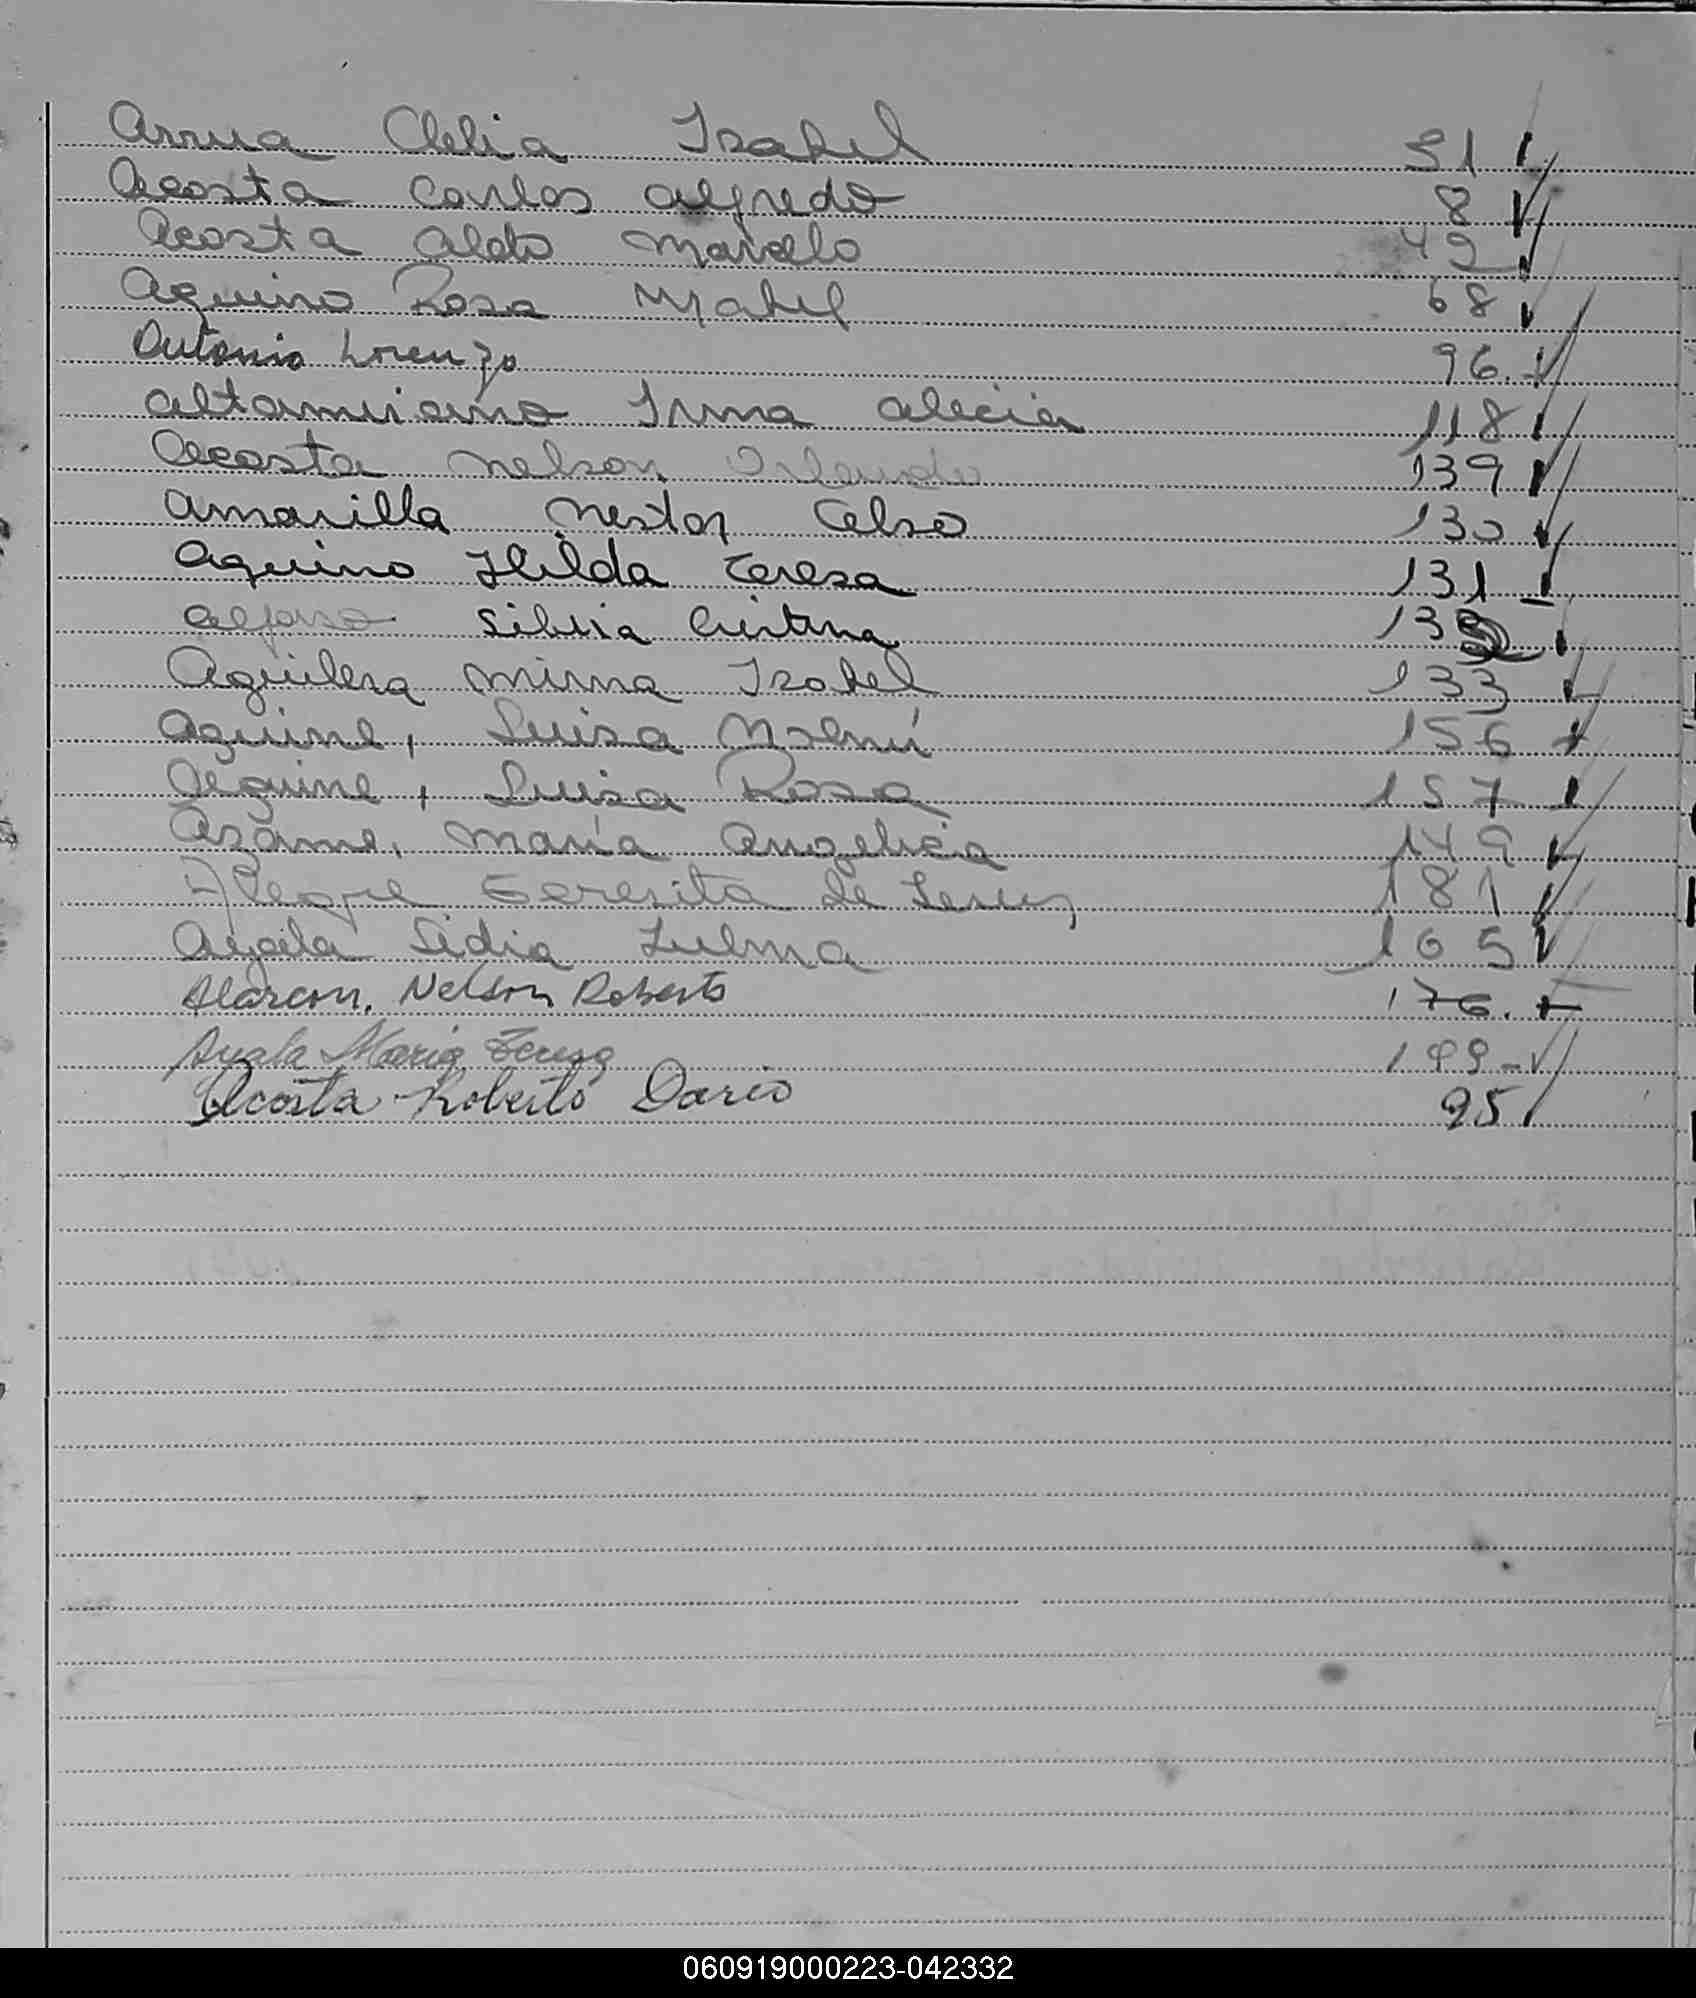 Arrua Clelia Isabel 51
Acosta Carlos Alfredo 8
Acosta Aldo Marcelo 42
Aquino Rosa Mabel 68
Antonio Lorenzo 96.
Altamirano Irma Alicia 118
Acosta Nelson Orlando 139
Amarilla Nestor Celso 130
Aquino Hilda Teresa 131
Alfonso Silvia Cristina 132
Aguilera Mirna Isabel 133
Aquine, Luisa Noemí 156
Aquine, Luisa Rosa 157
Azame, María Angelica 149
Alegre Teresita de Jesus 181
Ayala Lidia Zulma 165
Alarcon, Nelson Roberto 176.
Ayala Maria Teresa 199
Acosta Roberto Dario 95
060919000223-042332